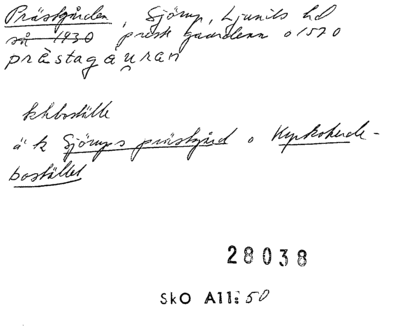 Prästgården, Sjörup, Ljunits hd
så 1930 prest gaardenn o 1570
prästagåu̯ran
khboställe
ä k Sjörups prästgård o Kyrkoherde-
bostället
28038
SkO A11:50